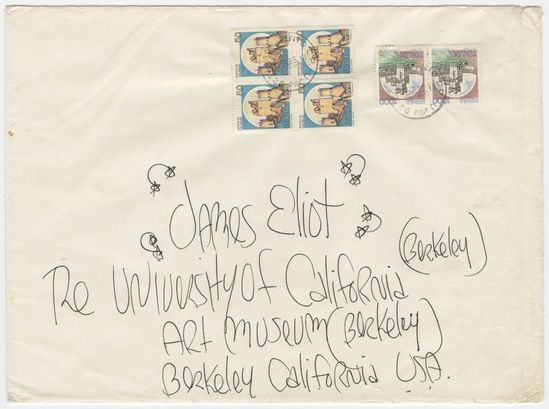 James Eliot
(Berkeley)
The University of California
Art Museum (Berkeley)
Berkeley California U.S.A.